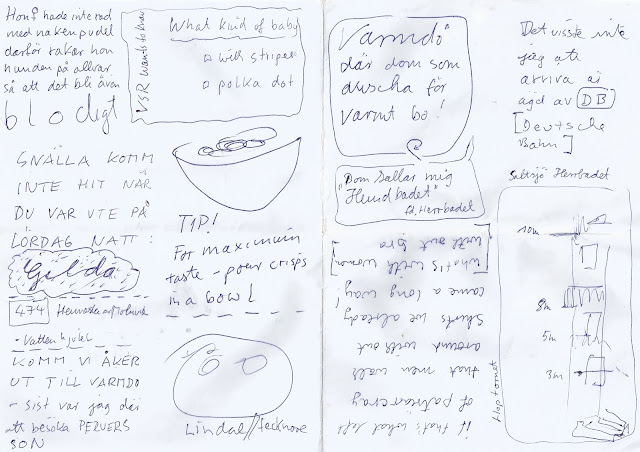 hade inte råd
med naken pudel
därför rakar hon
hunden på allvar
så att det bli även
blodigt
VSR wants to know
What kind of baby
with stripes
polka dot
SNÄLLA KOMM
INTE HIT NÄR
DU VAR UTE PÅ
LÖRDAG NATT:
Gilda
474
- Vatten hjulet
KOMM VI ÅKER
UT TILL VÄRMDÖ
- sist var jag där
att besöka PERVERS
SON
TIP!
For maximum
taste - pour crisps
in a bowl
Lindal//
Värmdö
där dom som
duscha för
varmt bo!
"Dom kallar mig
Hundbadet"
fd. Herrbadet
if that's what left
of patriarcray
that men walk
around without
shirts we already
came a long way!
[what is with women
without bra]
Det visste inte
jag att
arriva är
ägd av DB
[Deutsche
Bahn]
Saltsjö Herrbadet
10m
8m
5m
3m
Hopptornet